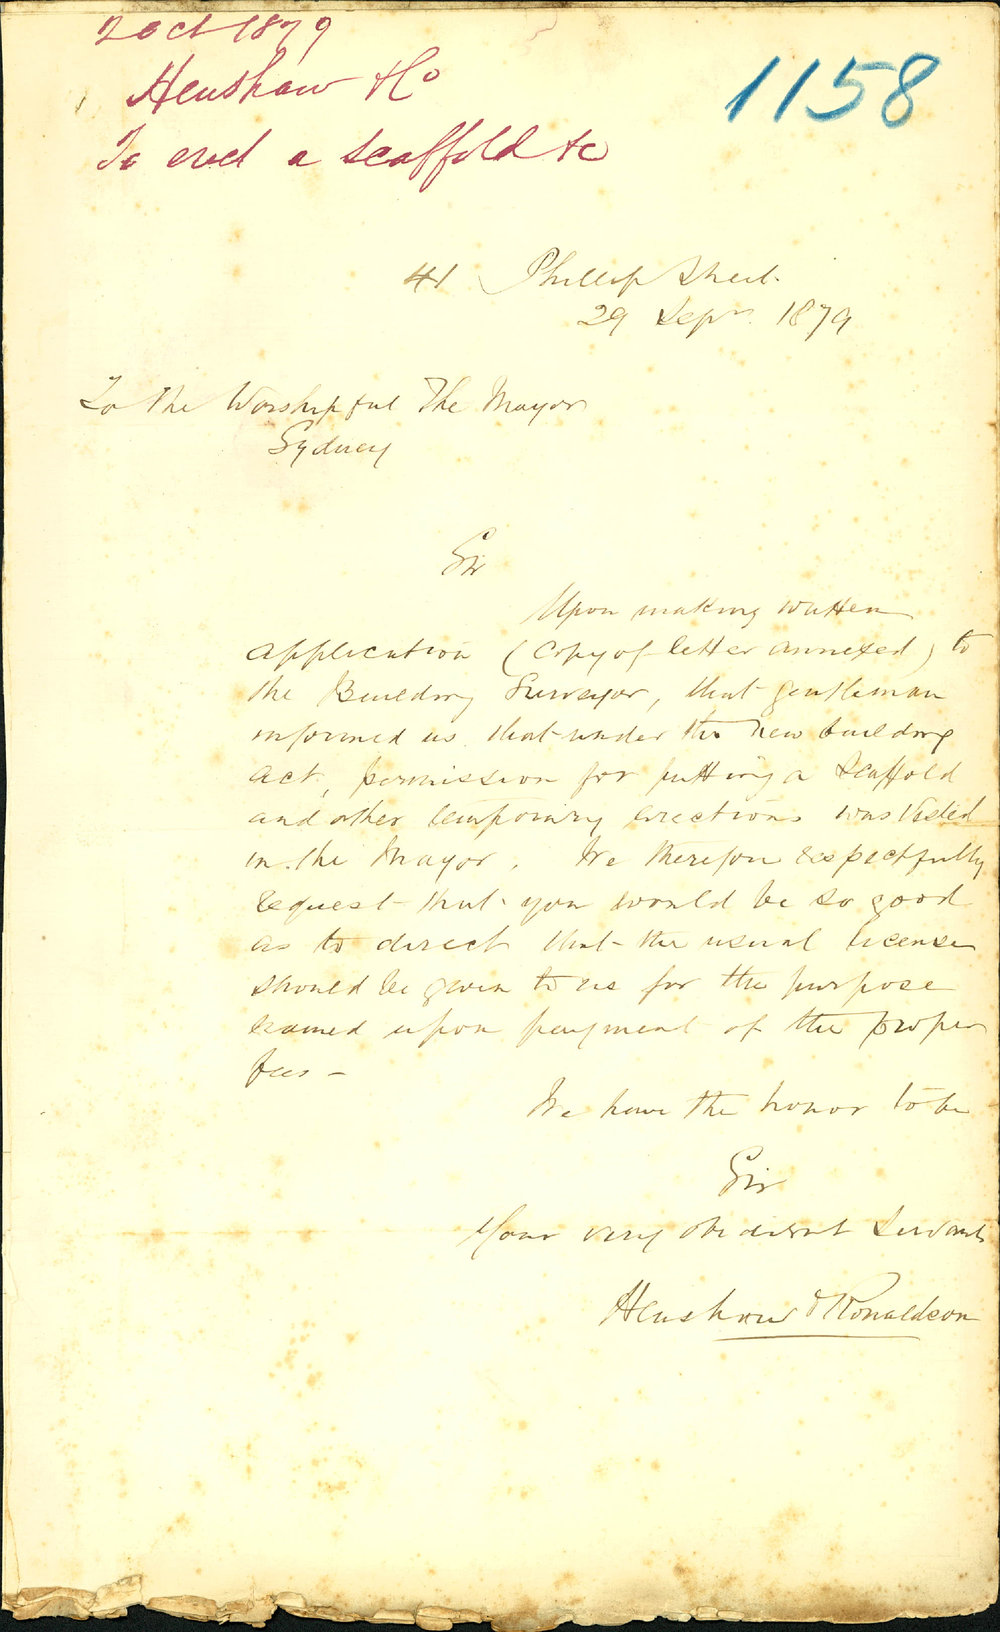 2 Oct 1879
Henshaw & Co
1158
To erect a scaffold &c
41 Phillip Street
29 Sepr. 1879
To the Worshipful The Mayor
Sydney
Sir
Upon making written
application (copy of letter annexed) to
the Building Surveyor, that gentleman
informed us that under the new building
act, permission for putting a Scaffold
and other temporary erections was Vested
in the Mayor. We therefore respectfully
request that you would be so good
as to direct that the usual license
should be given to us for the purpose
named upon payment of the proper
fees -
We have the honor to be
Sir
Your very obedient Servants
Henshaw & Ronaldson